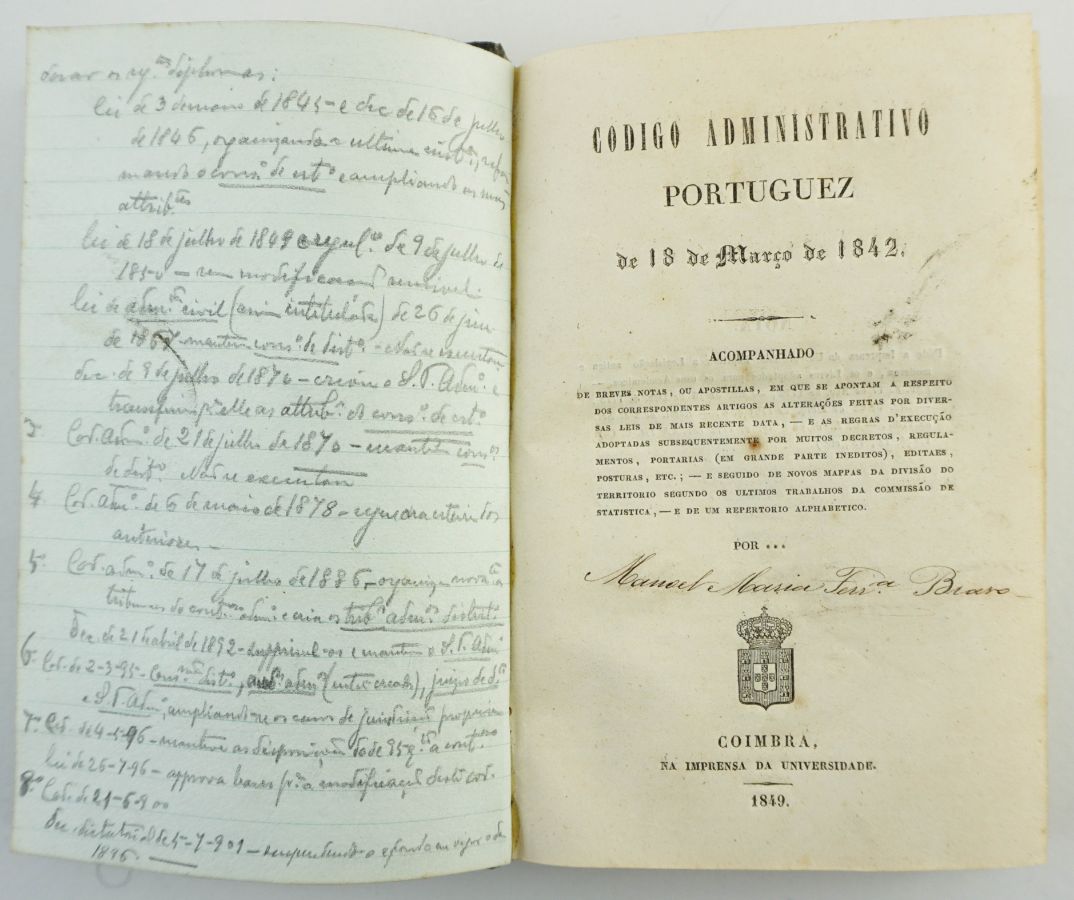 lei de 3 de maio de 1845 e dec de 16 de julho
de 1845, organizando
mando o cons.º de est.º e ampliando as suas
attrib.ões
lei de 18 de julho de 1849 e regul.to de 9 de julho de
1850 — sem modificacões sensiveis
lei de adm.ão civil (assim intitulada) de 26 de jun
de 1867 — mantem cons.º de dist.º — Não se executou
dec. de 9 de julho de 1870 — creou o S. T. Adm.º e
transferiu p.ª elle as attrib.ões do cons.º de est.º
3.º Cod. Adm.º de 21 de julho de 1870 — mantem cons.os
de dist.º Não se executou
4. Cod. adm.º de 6 de maio de 1878 —
anteriores —
5. Cod. adm.º de 17 de julho de 1886 — organiza novos
tribunaes do cont.oso adm.º e cria os trib.es adm.os district.es
Dec. de 21 de abril de 1892 — supprimiu-os e mantem o S. T. Adm.º
6.º Cod. de 2-3-95 —
e S. T. Adm.º, ampliando-se os casos de
7.º Cod. de 4-5-96 — manteve as disposições do de 95
lei de 26-7-96 — approva bases p.ª a modificação deste cod.
8.º Cod. de 21-6-900
Dec. dictatorial de 5-7-901 — suspendendo o e pondo em vigor o de
1896. —
CODIGO ADMINISTRATIVO
PORTUGUEZ
de 18 de Março de 1842.
ACOMPANHADO
DE BREVES NOTAS, OU APOSTILLAS, EM QUE SE APONTAM A RESPEITO
DOS CORRESPONDENTES ARTIGOS AS ALTERAÇÕES FEITAS POR DIVER-
SAS LEIS DE MAIS RECENTE DATA, — E AS REGRAS D'EXECUÇÃO
ADOPTADAS SUBSEQUENTEMENTE POR MUITOS DECRETOS, REGULA-
MENTOS, PORTARIAS (EM GRANDE PARTE INEDITOS), EDITAES,
POSTURAS, ETC.; — E SEGUIDO DE NOVOS MAPPAS DA DIVISÃO DO
TERRITORIO SEGUNDO OS ULTIMOS TRABALHOS DA COMMISSÃO DE
STATISTICA, — E DE UM REPERTORIO ALPHABETICO.
POR ...
Manoel Maria Ferr.ª Bravo
COIMBRA,
NA IMPRENSA DA UNIVERSIDADE.
1849.